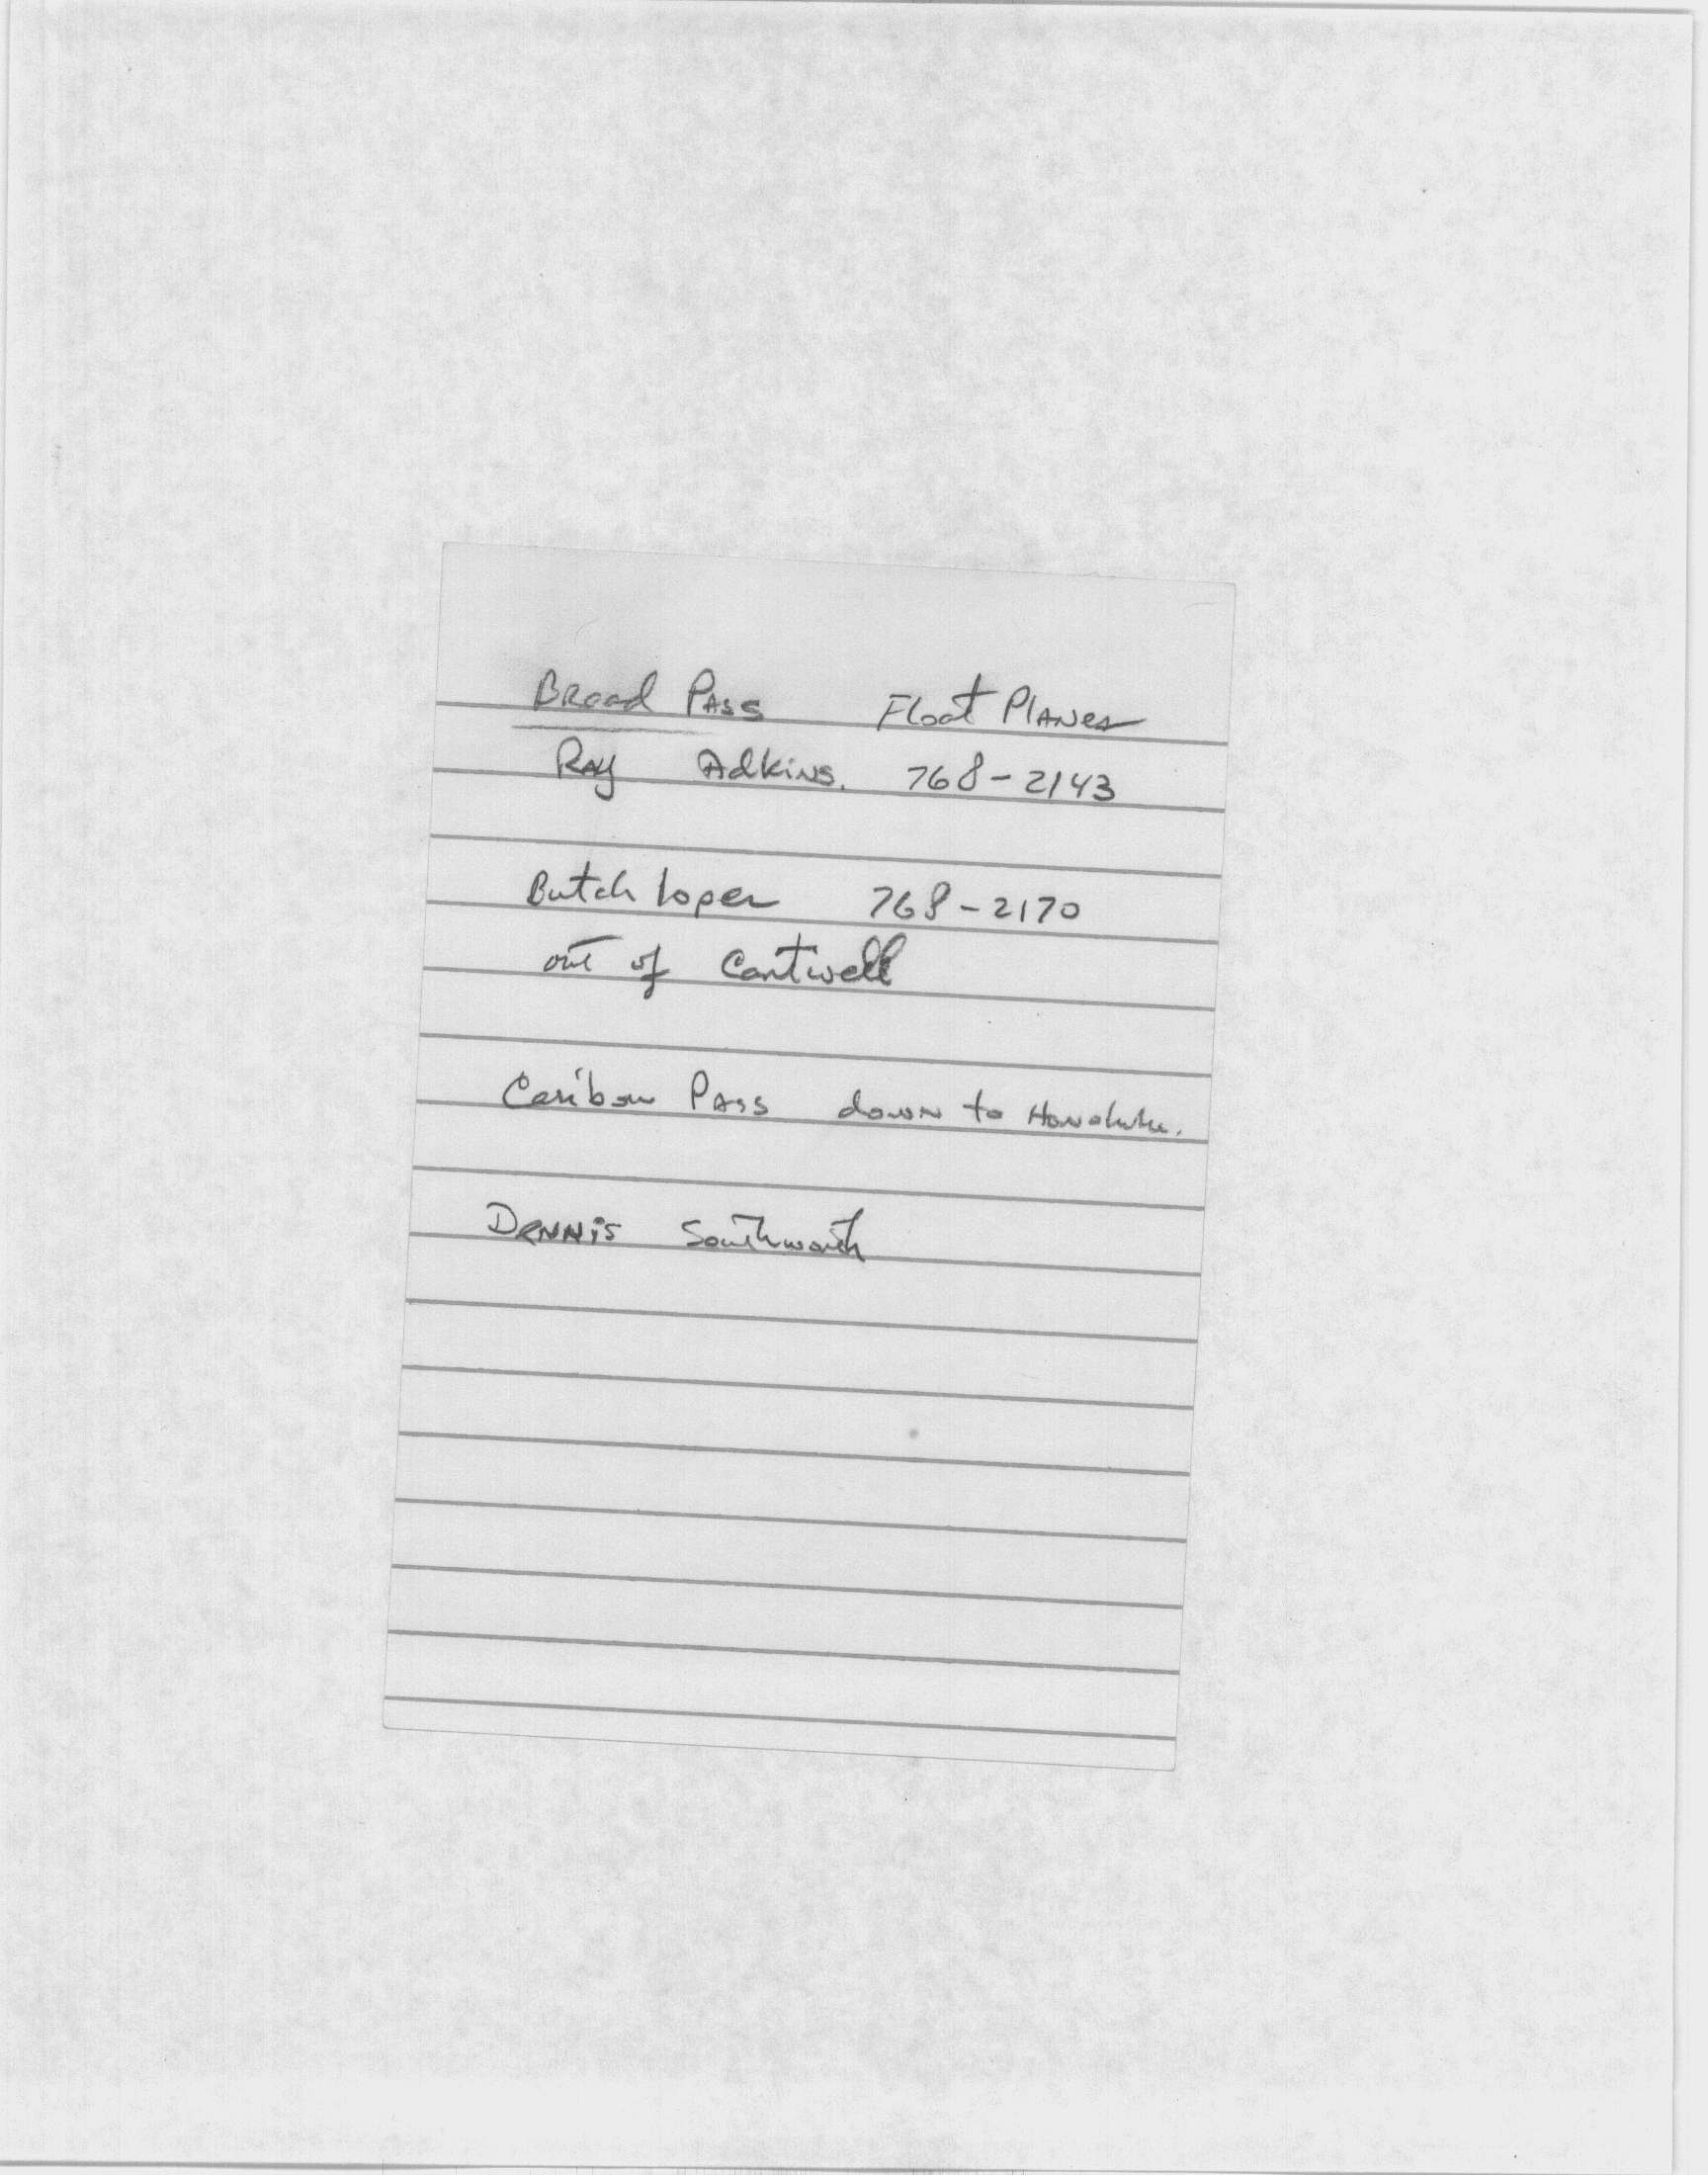 Broad Pass Float Planes
Ray Adkins. 768-2143
Butch Loper 768-2170
out of Cantwell
Caribou Pass down to Honolulu.
Dennis Southworth